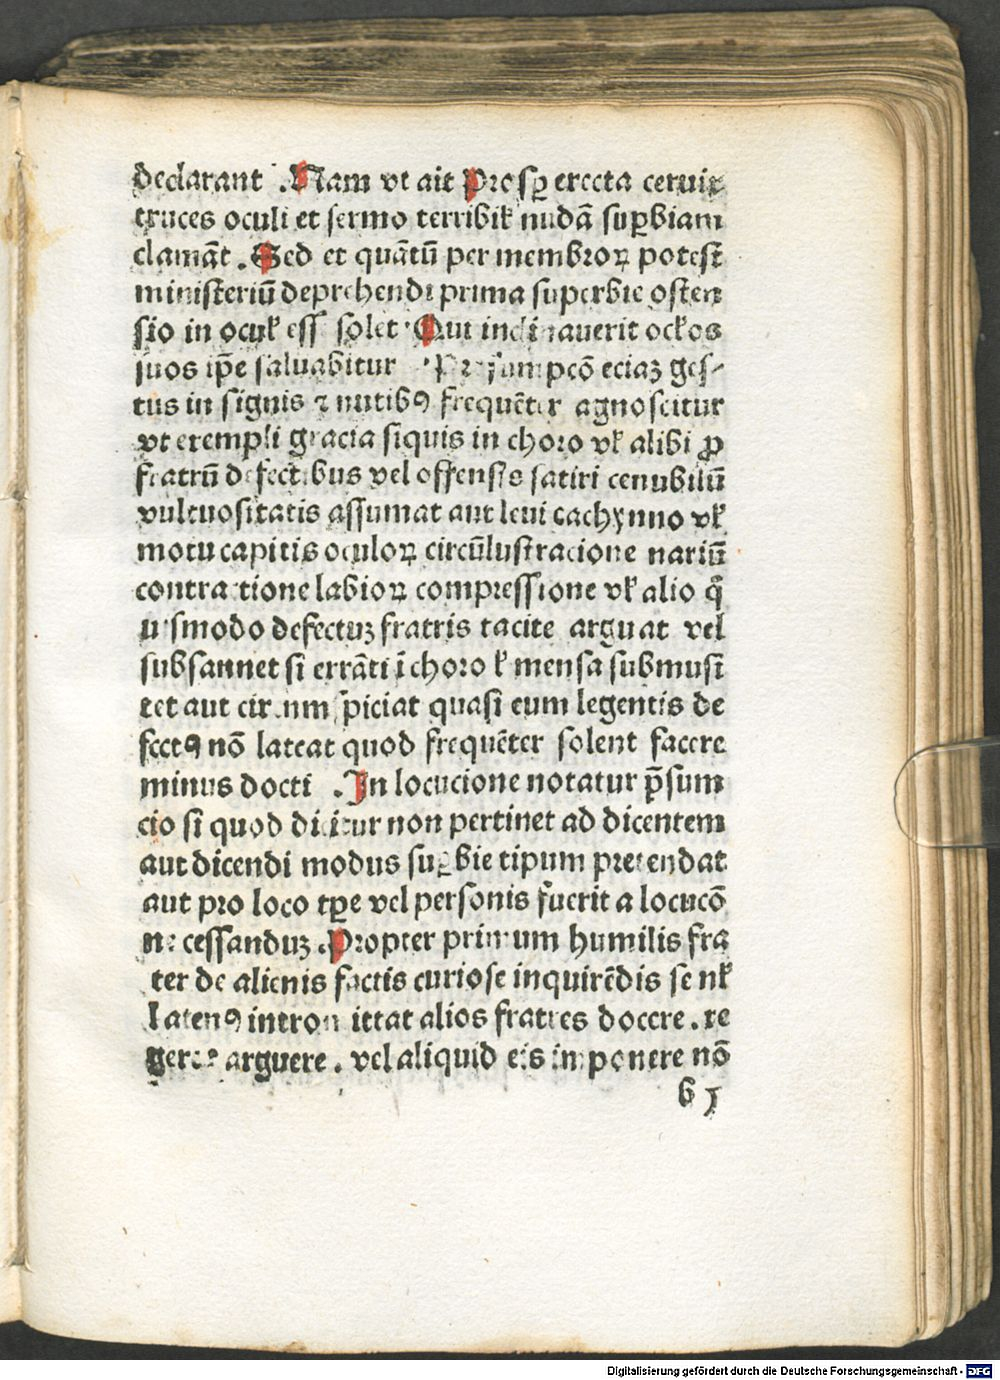 declarant . Nam vt ait Prosꝑ erecta ceruix
truces oculi et sermo terribiꝉ nudā suꝑbiam
clamāt . Sed et quātū per membroꝝ potest
ministeriū deprehendi prima superbie osten
sio in ocuꝉ eſſ solet · Qui inclinauerit ocꝉos
suos ip̄e saluabitur · Presumpcō eciaꝫ ges⸗
tus in signis ⁊ nutibꝰ frequēter agnoscitur
vt exempli gracia siquis in choro vꝉ alibi ꝓ
fratrū defectibus vel offensis satiri cenubilū
vultuositatis assumat aut leui cachynno vꝉ
motu capitis oculoꝝ circūlustracione nariū
contractione labioꝝ compressione vꝉ alio q̄
uismodo defectuꝫ fratris tacite arguat vel
subsannet si errāti ī choro ꝉ mensa submusi
tet aut circumspiciat quasi eum legentis de
fectꝰ nō lateat quod frequēter solent facere
minus docti . In locucione notatur p̄sum
cio si quod dicitur non pertinet ad dicentem
aut dicendi modus suꝑbie tipum pretendat
aut pro loco tꝑe vel personis fuerit a locucō
ne cessanduꝫ . Propter primum humilis fra
ter de alienis factis curiose inquirēdis se nꝉ
latenꝰ intromittat alios fratres docere . re
gere arguere . vel aliquid eis imponere nō
b ȷ
Digitalisierung gefördert durch die Deutsche Forschungsgemeinschaft - DFG